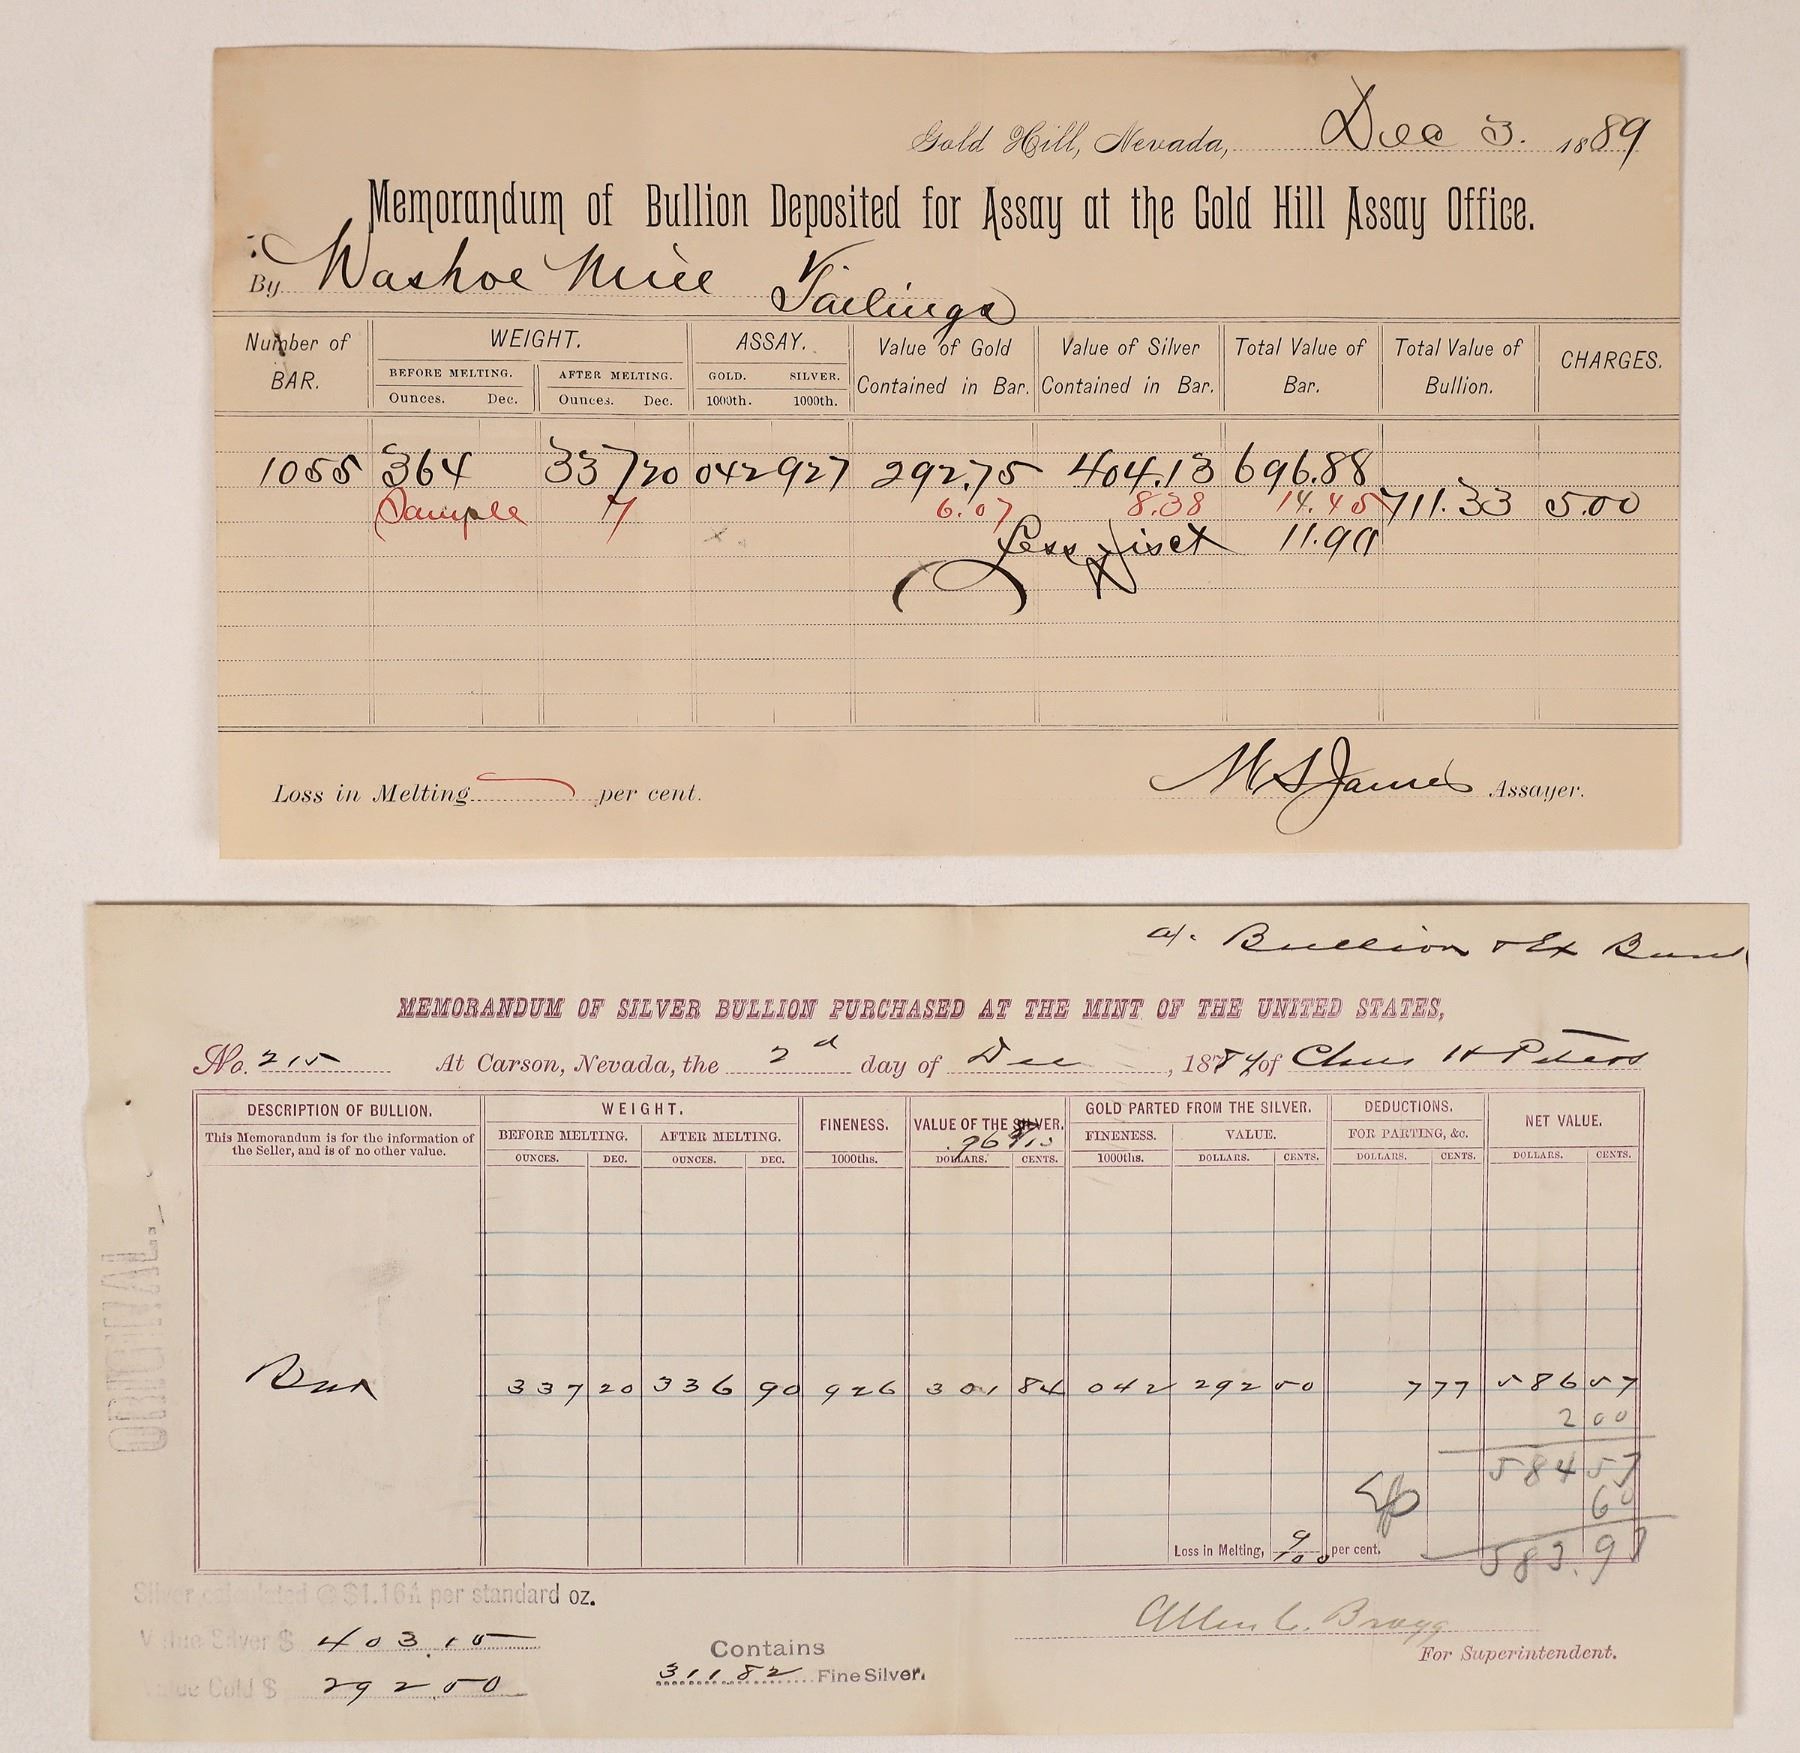 Gold Hill, Nevada, Dec 3. 1889
Memorandum of Bullion Deposited for Assay at the Gold Hill Assay Office.
By Washoe Mill Tailings
Number of BAR. WEIGHT. ASSAY. Value of Gold Contained in Bar. Value of Silver Contained in Bar. Total Value of Bar. Total Value of Bullion. CHARGES.
BEFORE MELTING. AFTER MELTING. GOLD. SILVER.
Ounces. Dec. Ounces. Dec. 1000th. 1000th.
1055 364 337 20 042 927 292.75 404.13 696.88
Sample 7 6.07 8.38 14.45 711.33 5.00
Less Disct 11.99
Loss in Melting per cent.
M S James Assayer.
a/. Bullion & Ex Bank
MEMORANDUM OF SILVER BULLION PURCHASED AT THE MINT OF THE UNITED STATES,
No. 215 At Carson, Nevada, the 2d day of Dec , 1889 of Chas H Peters
DESCRIPTION OF BULLION. WEIGHT. FINENESS. VALUE OF THE SILVER. GOLD PARTED FROM THE SILVER. DEDUCTIONS. NET VALUE.
This Memorandum is for the information of the Seller, and is of no other value. BEFORE MELTING. AFTER MELTING. FINENESS. VALUE. FOR PARTING, &c.
OUNCES. DEC. OUNCES. DEC. 1000ths. DOLLARS. CENTS. 1000ths. DOLLARS. CENTS. DOLLARS. CENTS. DOLLARS. CENTS.
ORIGINAL.
Bar 337 20 336 90 926 301 84 042 292 50 7 77 586 57
2 00
584 57
60
583.97
Loss in Melting, 9/100 per cent.
Silver calculated @ $1.164 per standard oz.
Value Silver $ 403.15
Value Gold $ 292.50
Contains
311 82 Fine Silver.
Allen C. Bragg
For Superintendent.